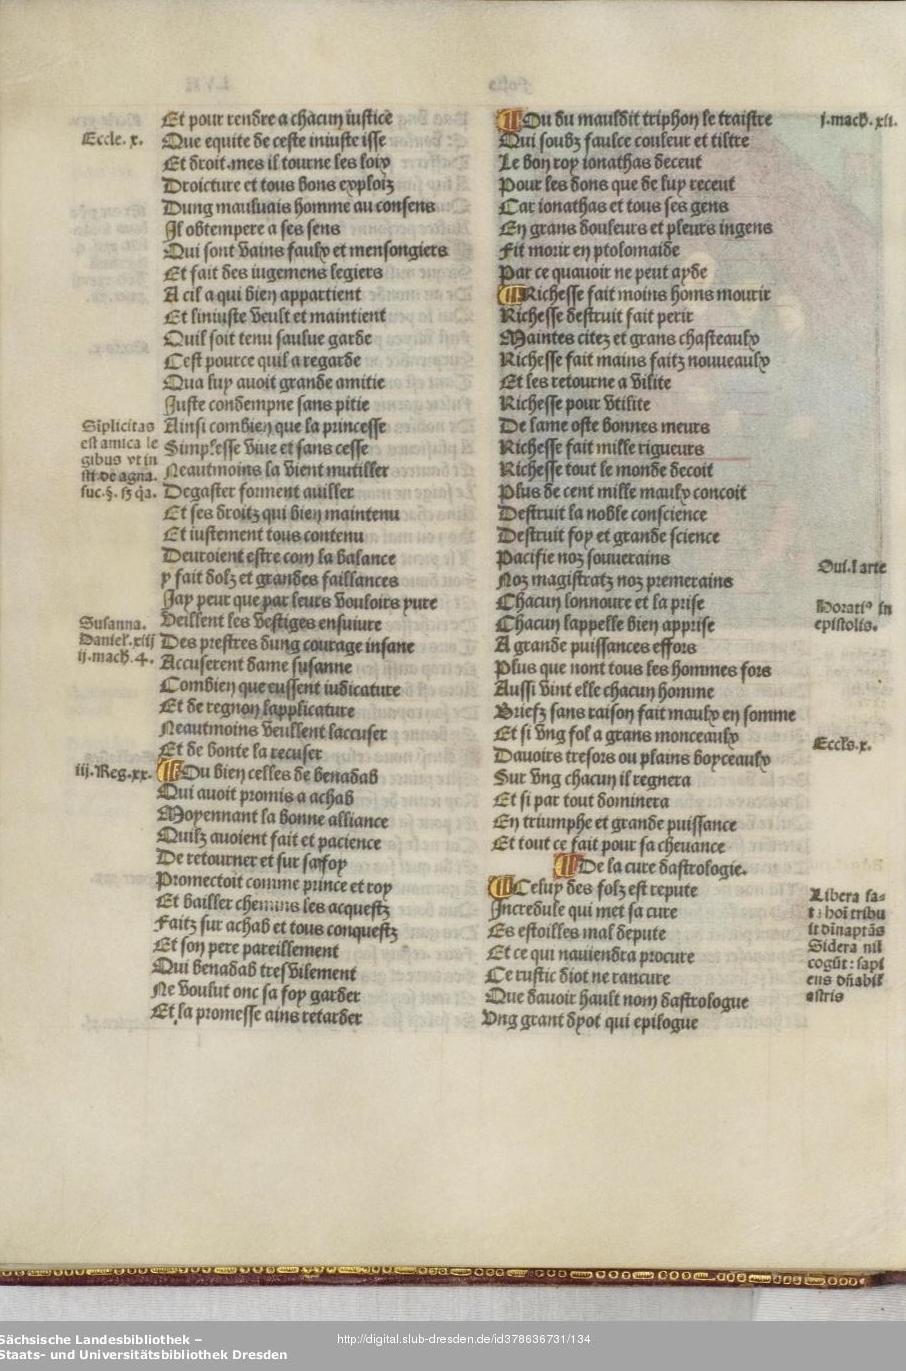 Et pour rendre a chacun iustice
Eccle. x.
Que equite de ceste iniuste isse
Et droit.mes il tourne les loix
Droicture et tous bons exploiz
Dung mauluais homme au consens
Il obtempere a ses sens
Qui sont vains faulx et mensongiers
Et fait des iugemens legiers
A cil a qui bien appartient
Et liniuste veult et maintient
Quil soit tenu saulue garde
Cest pource quil a regarde
Qua luy auoit grande amitie
Iuste condempne sans pitie
Ainsi combien que la princesse
Simplesse viue et sans cesse
Neautmoins la vient mutiller
Degaster forment auiller
Et ses droitz qui bien maintenu
Et iustement tous contenu
Deuroient estre com la balance
y fait dolz et grandes faillances
Jay peur que par leurs vouloirs pure
Veillent les vestiges ensuiure
Des prestres dung courage insane
Accuserent dame susanne
Combien que eussent iudicature
Et de regnon lapplicature
Neautmoins veullent laccuser
Et de bonte la recuser
Ou bien celles de benadab
Qui auoit promis a achab
Moyennant la bonne alliance
Quilz auoient fait et pacience
De retourner et sur sa foy
Promectoit comme prince et roy
Et bailler chemins les acquestz
Faitz sur achab et tous conquestz
Et son pere pareillement
Qui benadab tresvilement
Ne voulut onc sa foy garder
Et la promesse ains retarder
Siplicitas
est amica le
gibus vt in
sti de agna.
suc.§. sz q̃a.
Susanna.
Daniel. xiij
ij.mach. 4.
iij.Reg.xx.
Ou du mauldit triphon le traistre
Qui soubz faulce couleur et tiltre
Le bon roy ionathas deceut
Pour les dons que de luy receut
Car ionathas et tous ses gens
En grans douleurs et pleurs ingens
Fit morir en ptolomaide
Par ce quauoir ne peut ayde
Richesse fait moins homs mourir
Richesse destruit fait perir
Maintes citez et grans chasteaulx
Richesse fait mains faitz nouueaulx
Et les retourne a vilite
Richesse pour vtilite
De lame oste bonnes meurs
Richesse fait mille rigueurs
Richesse tout le monde decoit
Plus de cent mille maulx concoit
Destruit la noble conscience
Destruit foy et grande science
Pacifie noz souuerains
Noz magistratz noz premerains
Chacun lonnoure et la prise
Chacun lappelle bien apprise
A grande puissances effors
Plus que nont tous les hommes fors
Aussi vint elle chacun homme
Briefz sans raison fait maulx en somme
Et si vng fol a grans monceaulx
Dauoirs tresors ou plains boyceaulx
Sur vng chacun il regnera
Et si par tout dominera
En triumphe et grande puissance
Et tout ce fait pour sa cheuance
De la cure dastrologie.
Celuy des folz est repute
Incredule qui met sa cure
Es estoilles mal depute
Et ce qui nauiendra procure
Ce rustic diot ne rancure
Que dauoir hault nom dastrologue
Vng grant dyot qui epilogue
j.mach.xij.
Oui.l arte
Horatiꝰ in
epistolis.
Eccls.x.
Libera sa=
Sidera nil
astris
Sächsische Landesbibliothek –
Staats- und Universitätsbibliothek Dresden
http://digital.slub-dresden.de/id378636731/134